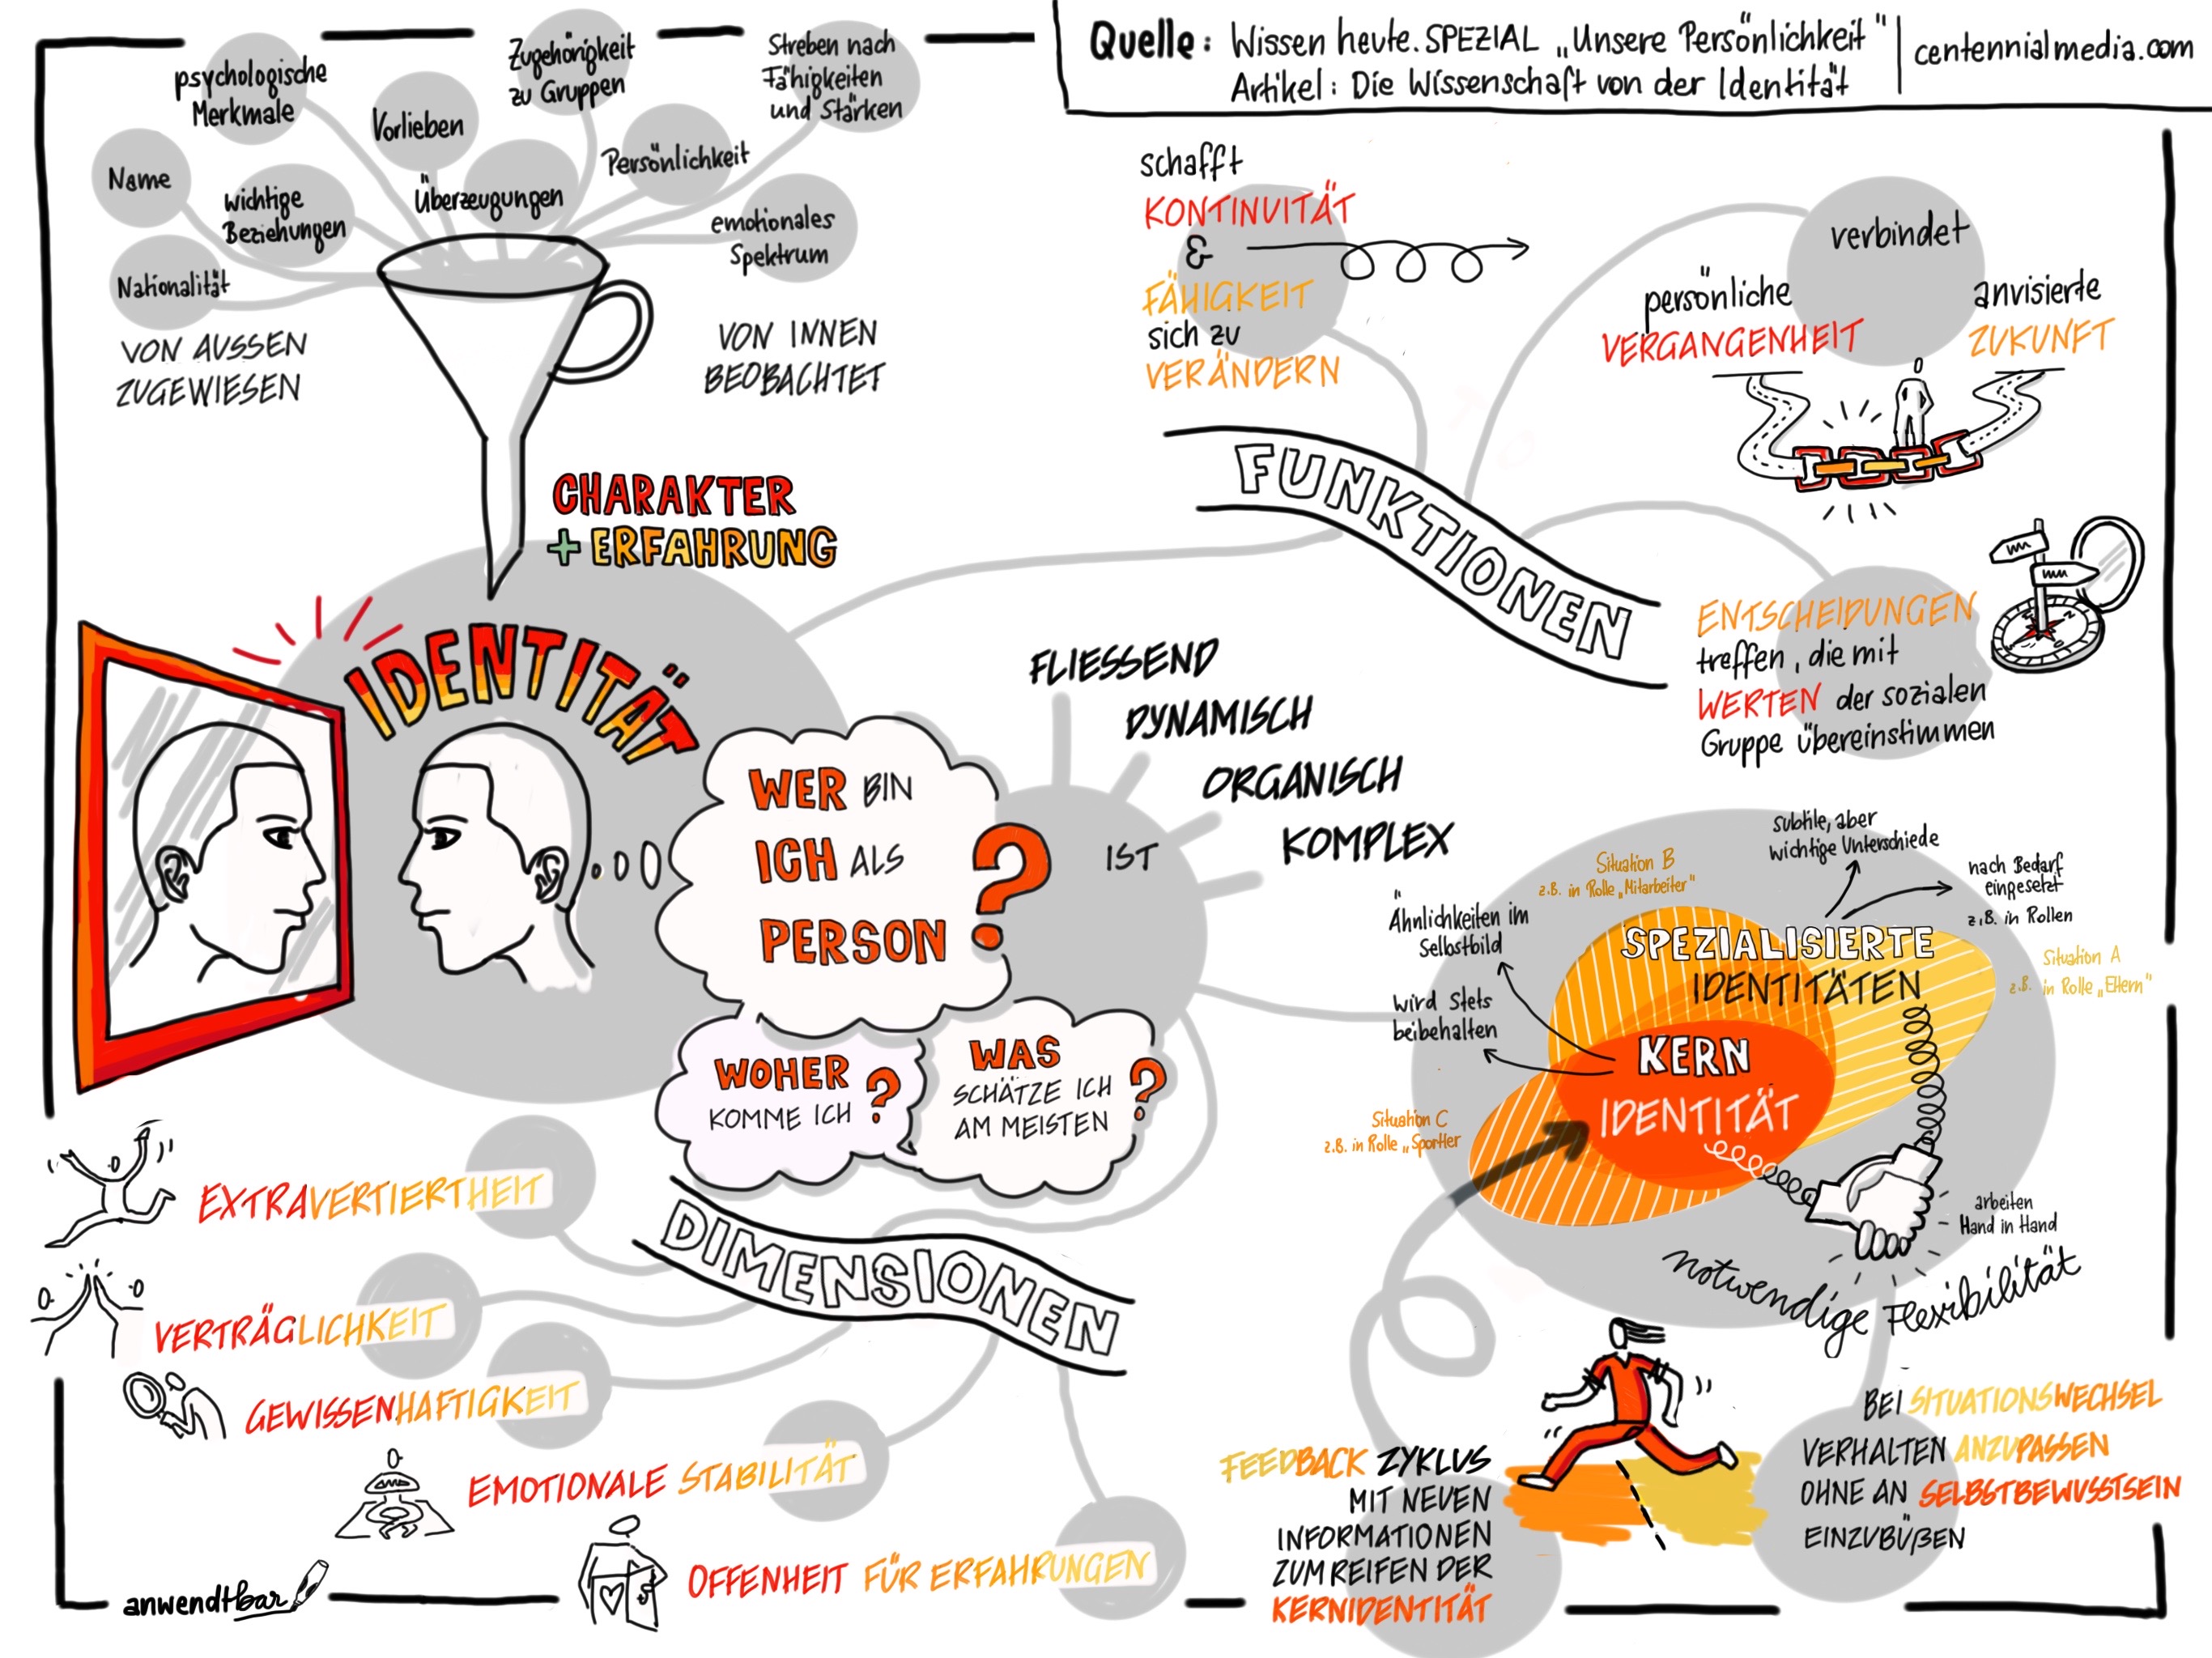 Quelle: Wissen heute. SPEZIAL „Unsere Persönlichkeit" | centennialmedia.com
Artikel: Die Wissenschaft von der Identität
psychologische
Merkmale
Zugehörigkeit
zu Gruppen
Streben nach
Fähigkeiten
und Stärken
Vorlieben
Name
wichtige
Beziehungen
Überzeugungen
Persönlichkeit
emotionales
Spektrum
Nationalität
VON AUSSEN
ZUGEWIESEN
VON INNEN
BEOBACHTET
CHARAKTER
+ ERFAHRUNG
IDENTITÄT
WER BIN
ICH ALS
PERSON ?
WOHER
KOMME ICH ?
WAS
SCHÄTZE ICH
AM MEISTEN ?
IST
FLIESSEND
DYNAMISCH
ORGANISCH
KOMPLEX
FUNKTIONEN
schafft
KONTINUITÄT
&
FÄHIGKEIT
sich zu
VERÄNDERN
verbindet
persönliche
VERGANGENHEIT
anvisierte
ZUKUNFT
ENTSCHEIDUNGEN
treffen, die mit
WERTEN der sozialen
Gruppe übereinstimmen
subtile, aber
wichtige Unterschiede
nach Bedarf
eingesetzt
z.B. in Rollen
Situation B
z.B. in Rolle „Mitarbeiter"
Ähnlichkeiten im
Selbstbild
wird stets
beibehalten
SPEZIALISIERTE
IDENTITÄTEN
Situation A
z.B. in Rolle „Eltern"
KERN
IDENTITÄT
Situation C
z.B. in Rolle „Sportler
arbeiten
Hand in Hand
notwendige Flexibilität
DIMENSIONEN
EXTRAVERTIERTHEIT
VERTRÄGLICHKEIT
GEWISSENHAFTIGKEIT
EMOTIONALE STABILITÄT
OFFENHEIT FÜR ERFAHRUNGEN
FEEDBACK ZYKLUS
MIT NEUEN
INFORMATIONEN
ZUM REIFEN DER
KERNIDENTITÄT
BEI SITUATIONSWECHSEL
VERHALTEN ANZUPASSEN
OHNE AN SELBSTBEWUSSTSEIN
EINZUBÜßEN
anwendtbar